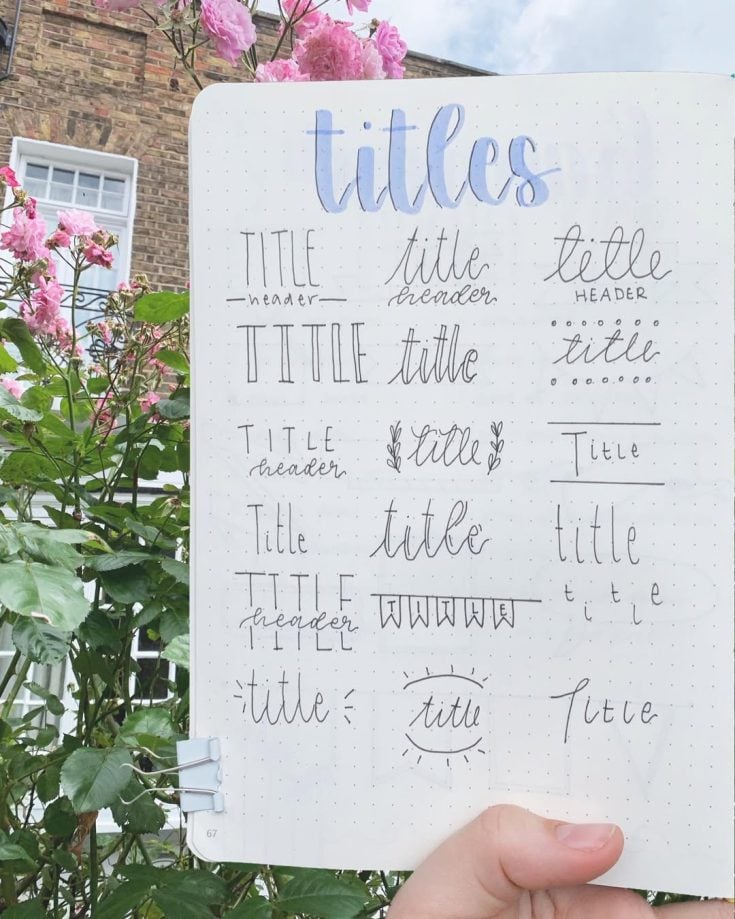 titles
TITLE title title
header header HEADER
TITLE title title
TITLE title Title
header
Title title title
TITLE TITLE title
header
title title Title
67